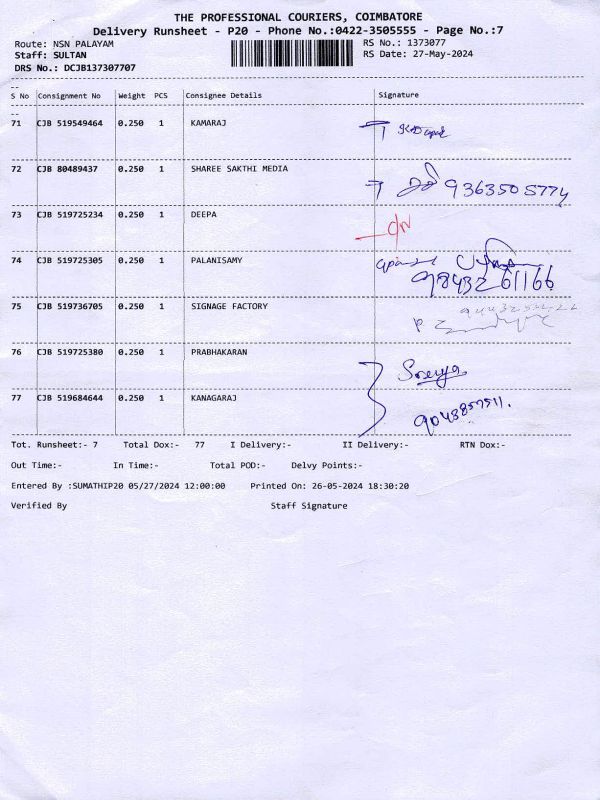 THE PROFESSIONAL COURIERS, COIMBATORE
Delivery Runsheet - P20 - Phone No.:0422-3505555 - Page No.:7
Route: NSN PALAYAM RS No.: 1373077
Staff: SULTAN RS Date: 27-May-2024
DRS No.: DCJB137307707
--
S No Consignment No Weight PCS Consignee Details Signature
--
71 CJB 519549464 0.250 1 KAMARAJ
72 CJB 80489437 0.250 1 SHAREE SAKTHI MEDIA 9363505774
73 CJB 519725234 0.250 1 DEEPA
74 CJB 519725305 0.250 1 PALANISAMY
9843261166
75 CJB 519736705 0.250 1 SIGNAGE FACTORY
76 CJB 519725380 0.250 1 PRABHAKARAN
77 CJB 519684644 0.250 1 KANAGARAJ
Tot. Runsheet:- 7 Total Dox:- 77 I Delivery:- II Delivery:- RTN Dox:-
Out Time:- In Time:- Total POD:- Delvy Points:-
Entered By :SUMATHIP20 05/27/2024 12:00:00 Printed On: 26-05-2024 18:30:20
Verified By Staff Signature